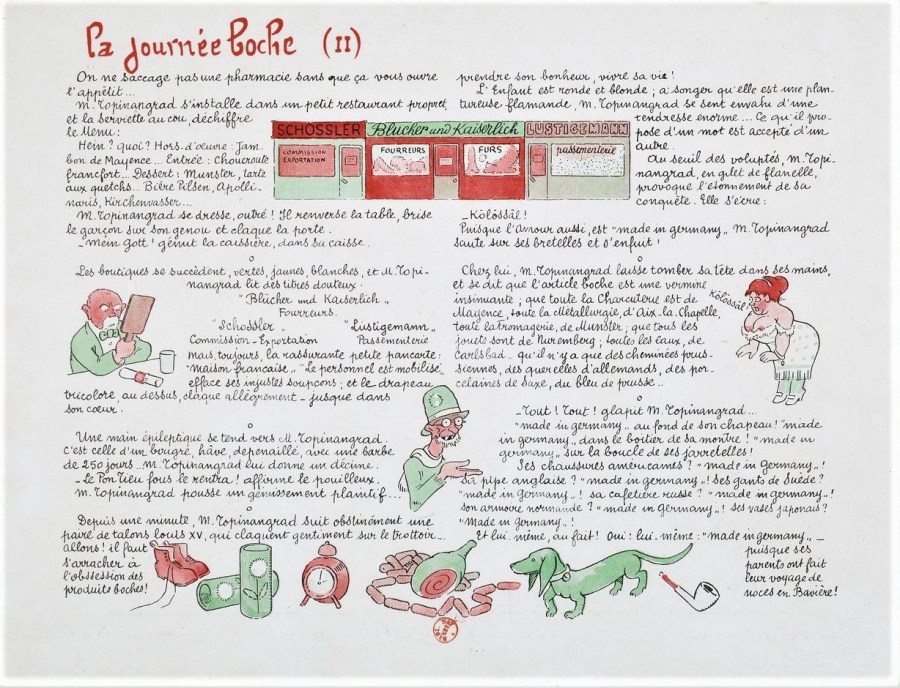 la journée boche (II)
On ne saccage pas une pharmacie sans que ça vous ouvre
l'appétit...
M. Topinangrad s'installe dans un petit restaurant propret,
et la serviette au cou, déchiffre
le Menu:
Hein? quoi? Hors-d'œuvre: Jam-
bon de Mayence... Entrée: Choucroute
francfort... Dessert: Munster, tarte
aux quetschs... Bière Pilsen, Apolli-
naris, Kirchenvasser...
M. Topinangrad se dresse, outré! Il renverse la table, brise
le garçon sur son genou et claque la porte.
- Mein Gott! gémit la caissière, dans sa caisse.
Les boutiques se succèdent, vertes, jaunes, blanches, et M. Topi-
nangrad lit des titres douteux:
"Blücher und Kaiserlich„
Fourreurs.
"Schossler„ "Lustigemann„
Commission-Exportation Passementerie
mais, toujours, la rassurante petite pancarte:
"maison française„ "Le personnel est mobilisé„
efface ses injustes soupçons; et le drapeau
tricolore, au dessus, claque allègrement - jusque dans
son cœur.
Une main épileptique se tend vers M. Topinangrad.
C'est celle d'un bougre, hâve, dépenaillé, avec une barbe
de 250 jours... M. Topinangrad lui donne un décime.
- Le Pon Tieu fous le rentra! affirme le pouilleux.
M. Topinangrad pousse un gémissement plaintif...
Depuis une minute, M. Topinangrad suit obstinément une
paire de talons Louis XV, qui claquent gentiment sur le trottoir...
allons! il faut
s'arracher à
l'obsession des
produits boches!
SCHOSSLER
COMMISSION
EXPORTATION
Blücher und Kaiserlich
FOURREURS
FURS
LUSTIGEMANN
passementerie
prendre son bonheur, vivre sa vie!
L'Enfant est ronde et blonde; à songer qu'elle est une plan-
tureuse flamande, M. Topinangrad se sent envahi d'une
tendresse énorme... Ce qu'il pro-
pose d'un mot est accepté d'un
autre.
Au seuil des voluptés, M. Topi-
nangrad, en gilet de flanelle,
provoque l'étonnement de sa
conquête. Elle s'écrie:
- Kölössâl!
Puisque l'Amour aussi, est "made in germany„ M. Topinangrad
saute sur ses bretelles et s'enfuit!
Chez lui, M. Topinangrad laisse tomber sa tête dans ses mains,
et se dit que l'article boche est une vermine
insinuante; que toute la Charcuterie est de
Mayence, toute la métallurgie d'Aix-la-Chapelle,
toute la fromagerie, de Munster; que tous les
jouets sont de Nuremberg; toutes les eaux, de
Carlsbad... qu'il n'y a que des cheminées prus-
siennes, des querelles d'allemands, des por-
celaines de saxe, du bleu de prusse...
Kölössâl!
- Tout! Tout! glapit M. Topinangrad...
"made in germany„ au fond de son chapeau! "made
in germany„ dans le boîtier de sa montre! "made in
germany„ sur la boucle de ses jarretelles!
Ses chaussures américaines? "made in Germany„!
sa pipe anglaise? "made in germany„! ses gants de Suède?
"made in germany„! sa cafetière russe? "made in germany„!
son armoire normande? "made in germany„! ses vases japonais?
"Made in Germany„!
Et lui même, au fait! Oui: lui-même: "made in germany„ -
puisque ses
parents ont fait
leur voyage de
noces en Bavière!